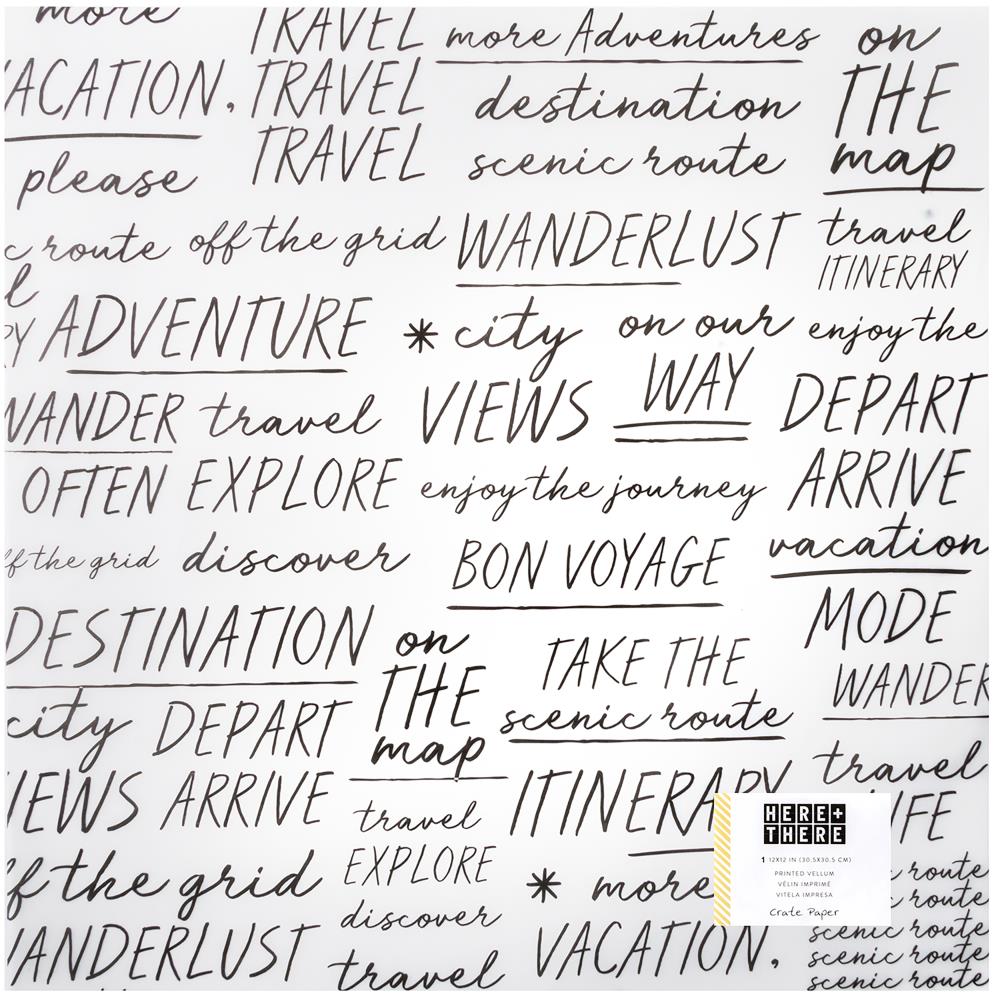 more
VACATION,
please
TRAVEL
TRAVEL
TRAVEL
more Adventures
destination
scenic route
on
THE
map
c route off the grid
WANDERLUST
travel
ITINERARY
ADVENTURE
* city
VIEWS
on our
WAY
enjoy the
WANDER travel
OFTEN EXPLORE
enjoy the journey
DEPART
ARRIVE
ff the grid discover
BON VOYAGE
vacation
MODE
DESTINATION
on
THE
map
TAKE THE
scenic route
WANDER
city DEPART
IEWS ARRIVE
travel
EXPLORE
discover
travel
ITINERARY
travel
IFE
ff the grid
WANDERLUST
* more
VACATION,
scenic route
scenic route
scenic route
scenic route
scenic route
HERE+
THERE
1 12X12 IN (30.5X30.5 CM)
PRINTED VELLUM
VÉLIN IMPRIMÉ
VITELA IMPRESA
Crate Paper